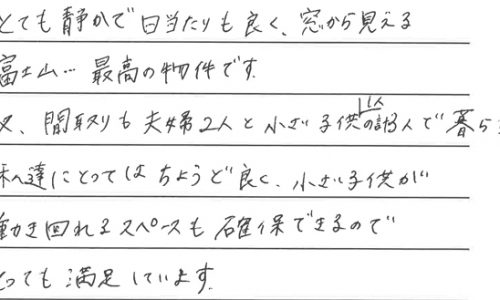 とても静かで日当たりも良く、窓から見える
富士山… 最高の物件です。
又、間取りも夫婦2人と小さい子供1人の計3人で暮らす
私達にとってはちょうど良く、小さい子供が
動き回れるスペースも確保できるので
とっても満足しています。